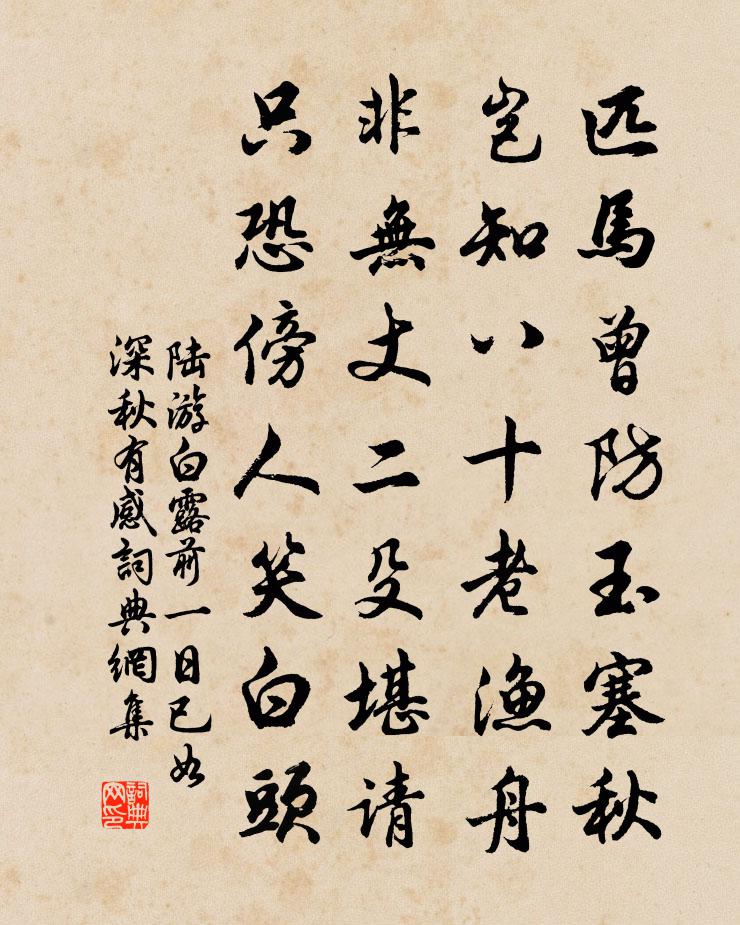 匹馬曾防玉塞秋
岂知八十老漁舟
非無丈二殳堪请
只恐傍人笑白頭
陆游白露前一日已如
深秋有感詞典網集
詞典网印